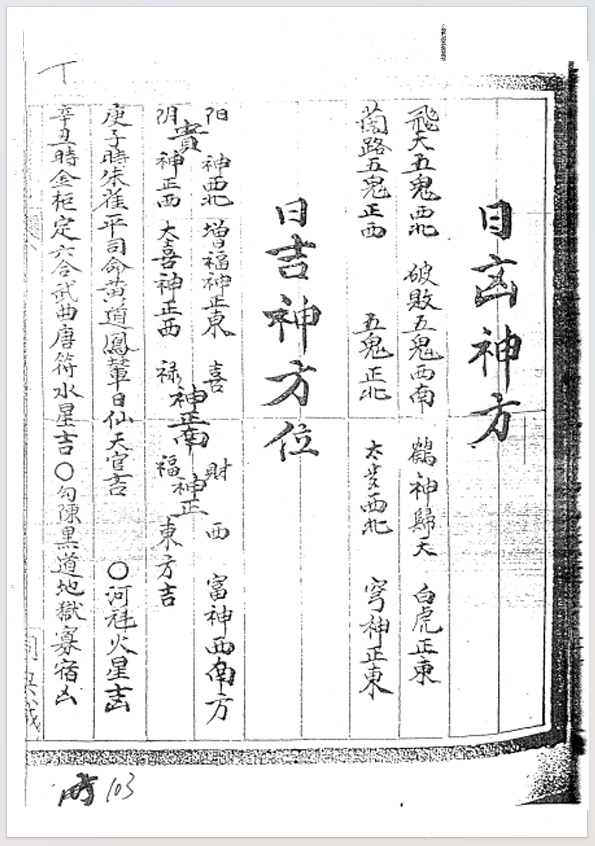 日凶神方
飛天五鬼西北 破敗五鬼西南 鶴神歸天 白虎正東
五鬼正西 五鬼正北 太岁西北 穹神正東
日吉神方位
阳 神西北 增福神正東 喜 財 西 富神西南方
貴 神正南 神正
阴 神正西 大喜神正西 禄 福 東方吉
庚子時朱雀平司命黄道鳳輦日仙天官吉 〇河魁火星吉凶
辛丑時金柜定六合武曲唐符水星吉〇勾陳黒道地獄寡宿凶
103